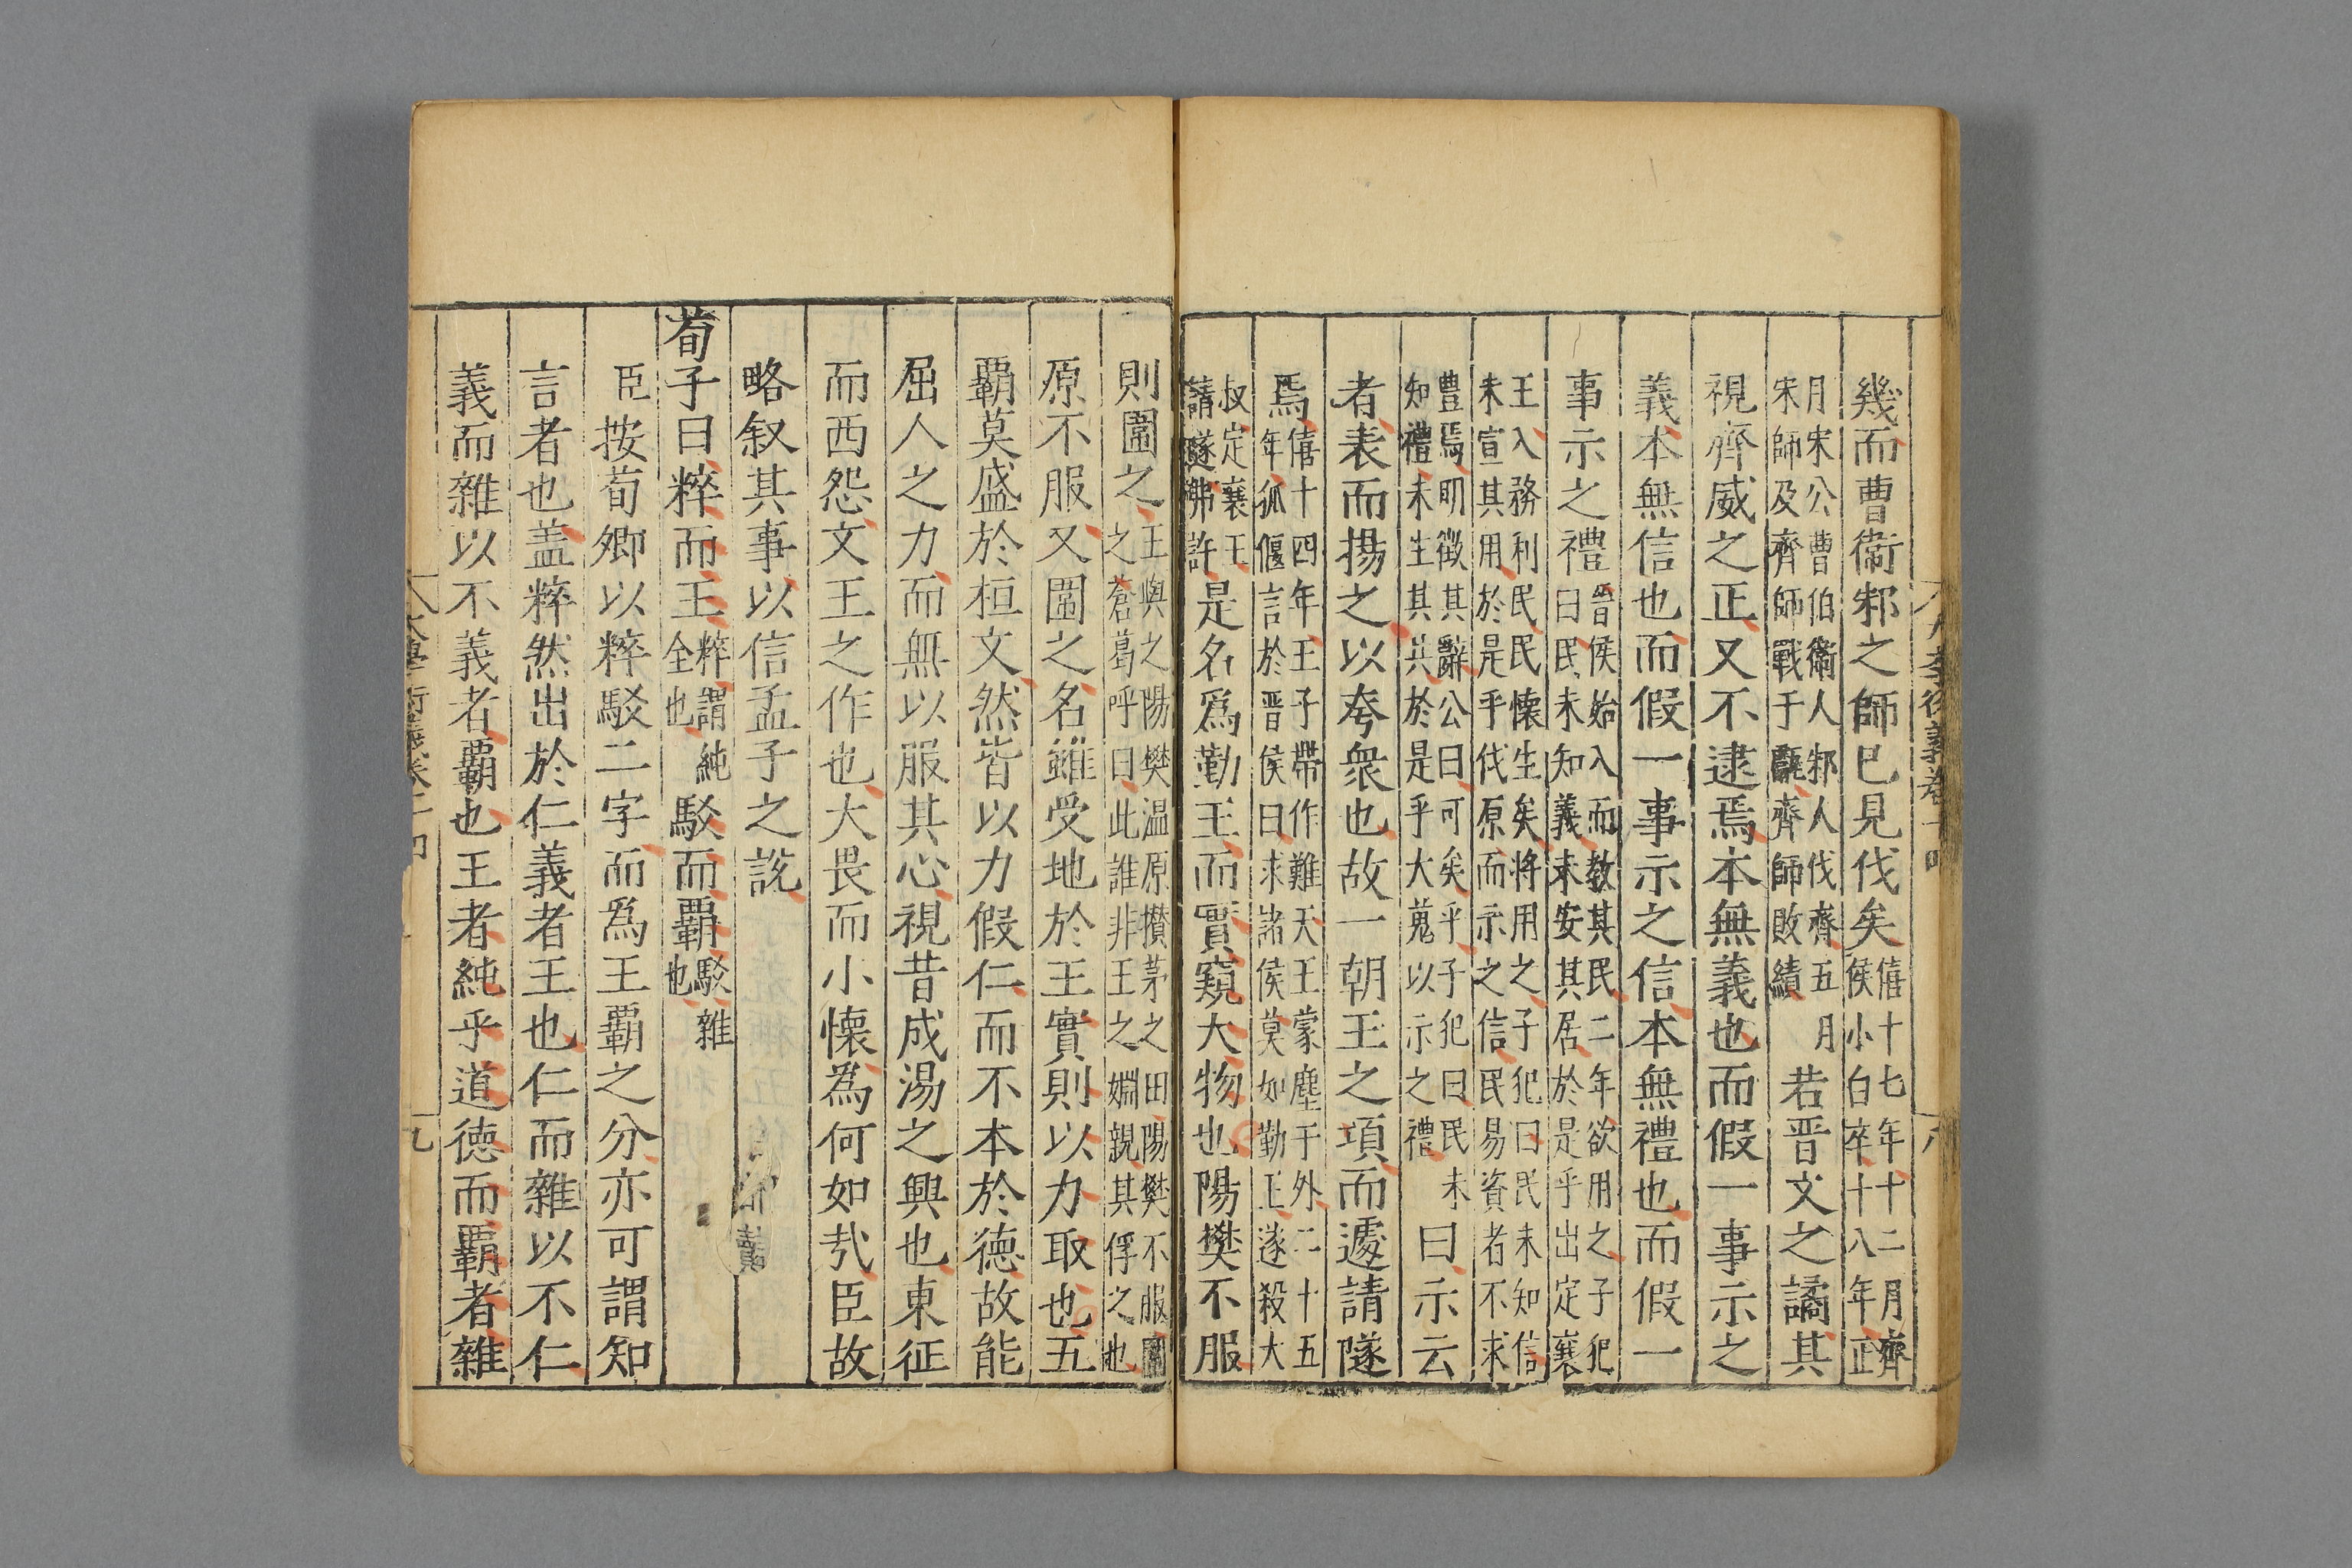 幾而曹衞邾之師已見伐矣僖十七年十二月齊侯小白卒十八年正
月宋公曹伯衞人邾人伐齊五月宋師及齊師戰于甗齊師敗績若晋文之譎其
視齊威之正又不逮焉本無義也而假一事示之
義本無信也而假一事示之信本無禮也而假一
事示之禮晋侯始入而教其民二年欲用之子犯曰民未知義未安其居於是乎出定襄
王入務利民民懐生矣將用之子犯曰民未知信未宣其用於是乎伐原而示之信民易資者不求
豊焉明徴其辭公曰可矣乎子犯曰民未知禮未生其共於是乎大蒐以示之禮曰示云
者表而揚之以夸衆也故一朝王之項而遽請隧
焉僖十四年王子帶作難天王蒙塵于外二十五年狐偃言於晋侯曰求諸侯莫如勤王遂殺大
叔定襄王請隧弗許是名爲勤王而實窺大物也陽樊不服
則圍之王與之陽樊温原攅茅之田陽樊不服圍之蒼葛呼曰此誰非王之婣親其俘之也
原不服又圍之名雖受地於王實則以力取也五
覇莫盛於桓文然皆以力假仁而不本於徳故能
屈人之力而無以服其心視昔成湯之興也東征
而西怨文王之作也大畏而小懐爲何如㢤臣故
略叙其事以信孟子之説
荀子曰粹而王粹謂純全也駁而覇駁雜也
臣按荀卿以粹駁二字而爲王覇之分亦可謂知
言者也盖粹然出於仁義者王也仁而雜以不仁
義而雜以不義者覇也王者純乎道徳而覇者雜
九